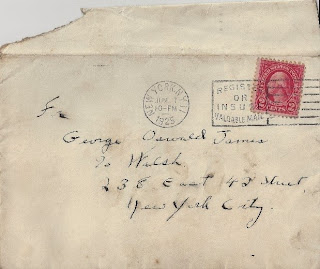 NEW YORK, N.Y.
10-PM
1925
REGISTER
OR
INSURE
VALUABLE MAIL
2 CENTS 2
George Oswald James
% Walsh
238 East 48 Street
New York City.